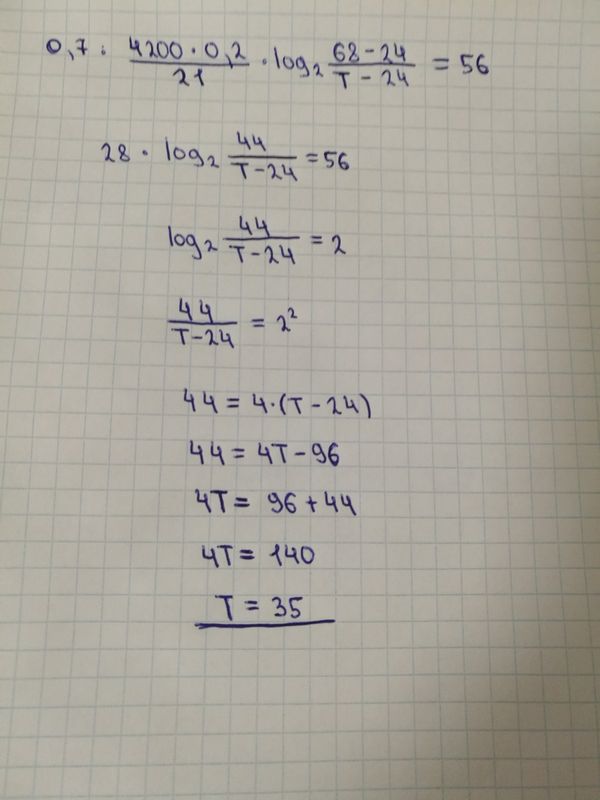 0,7 · 4200 · 0,2 / 21 · log₂ 68 - 24 / T - 24 = 56
28 · log₂ 44 / T - 24 = 56
log₂ 44 / T - 24 = 2
44 / T - 24 = 2²
44 = 4 · (T - 24)
44 = 4T - 96
4T = 96 + 44
4T = 140
T = 35